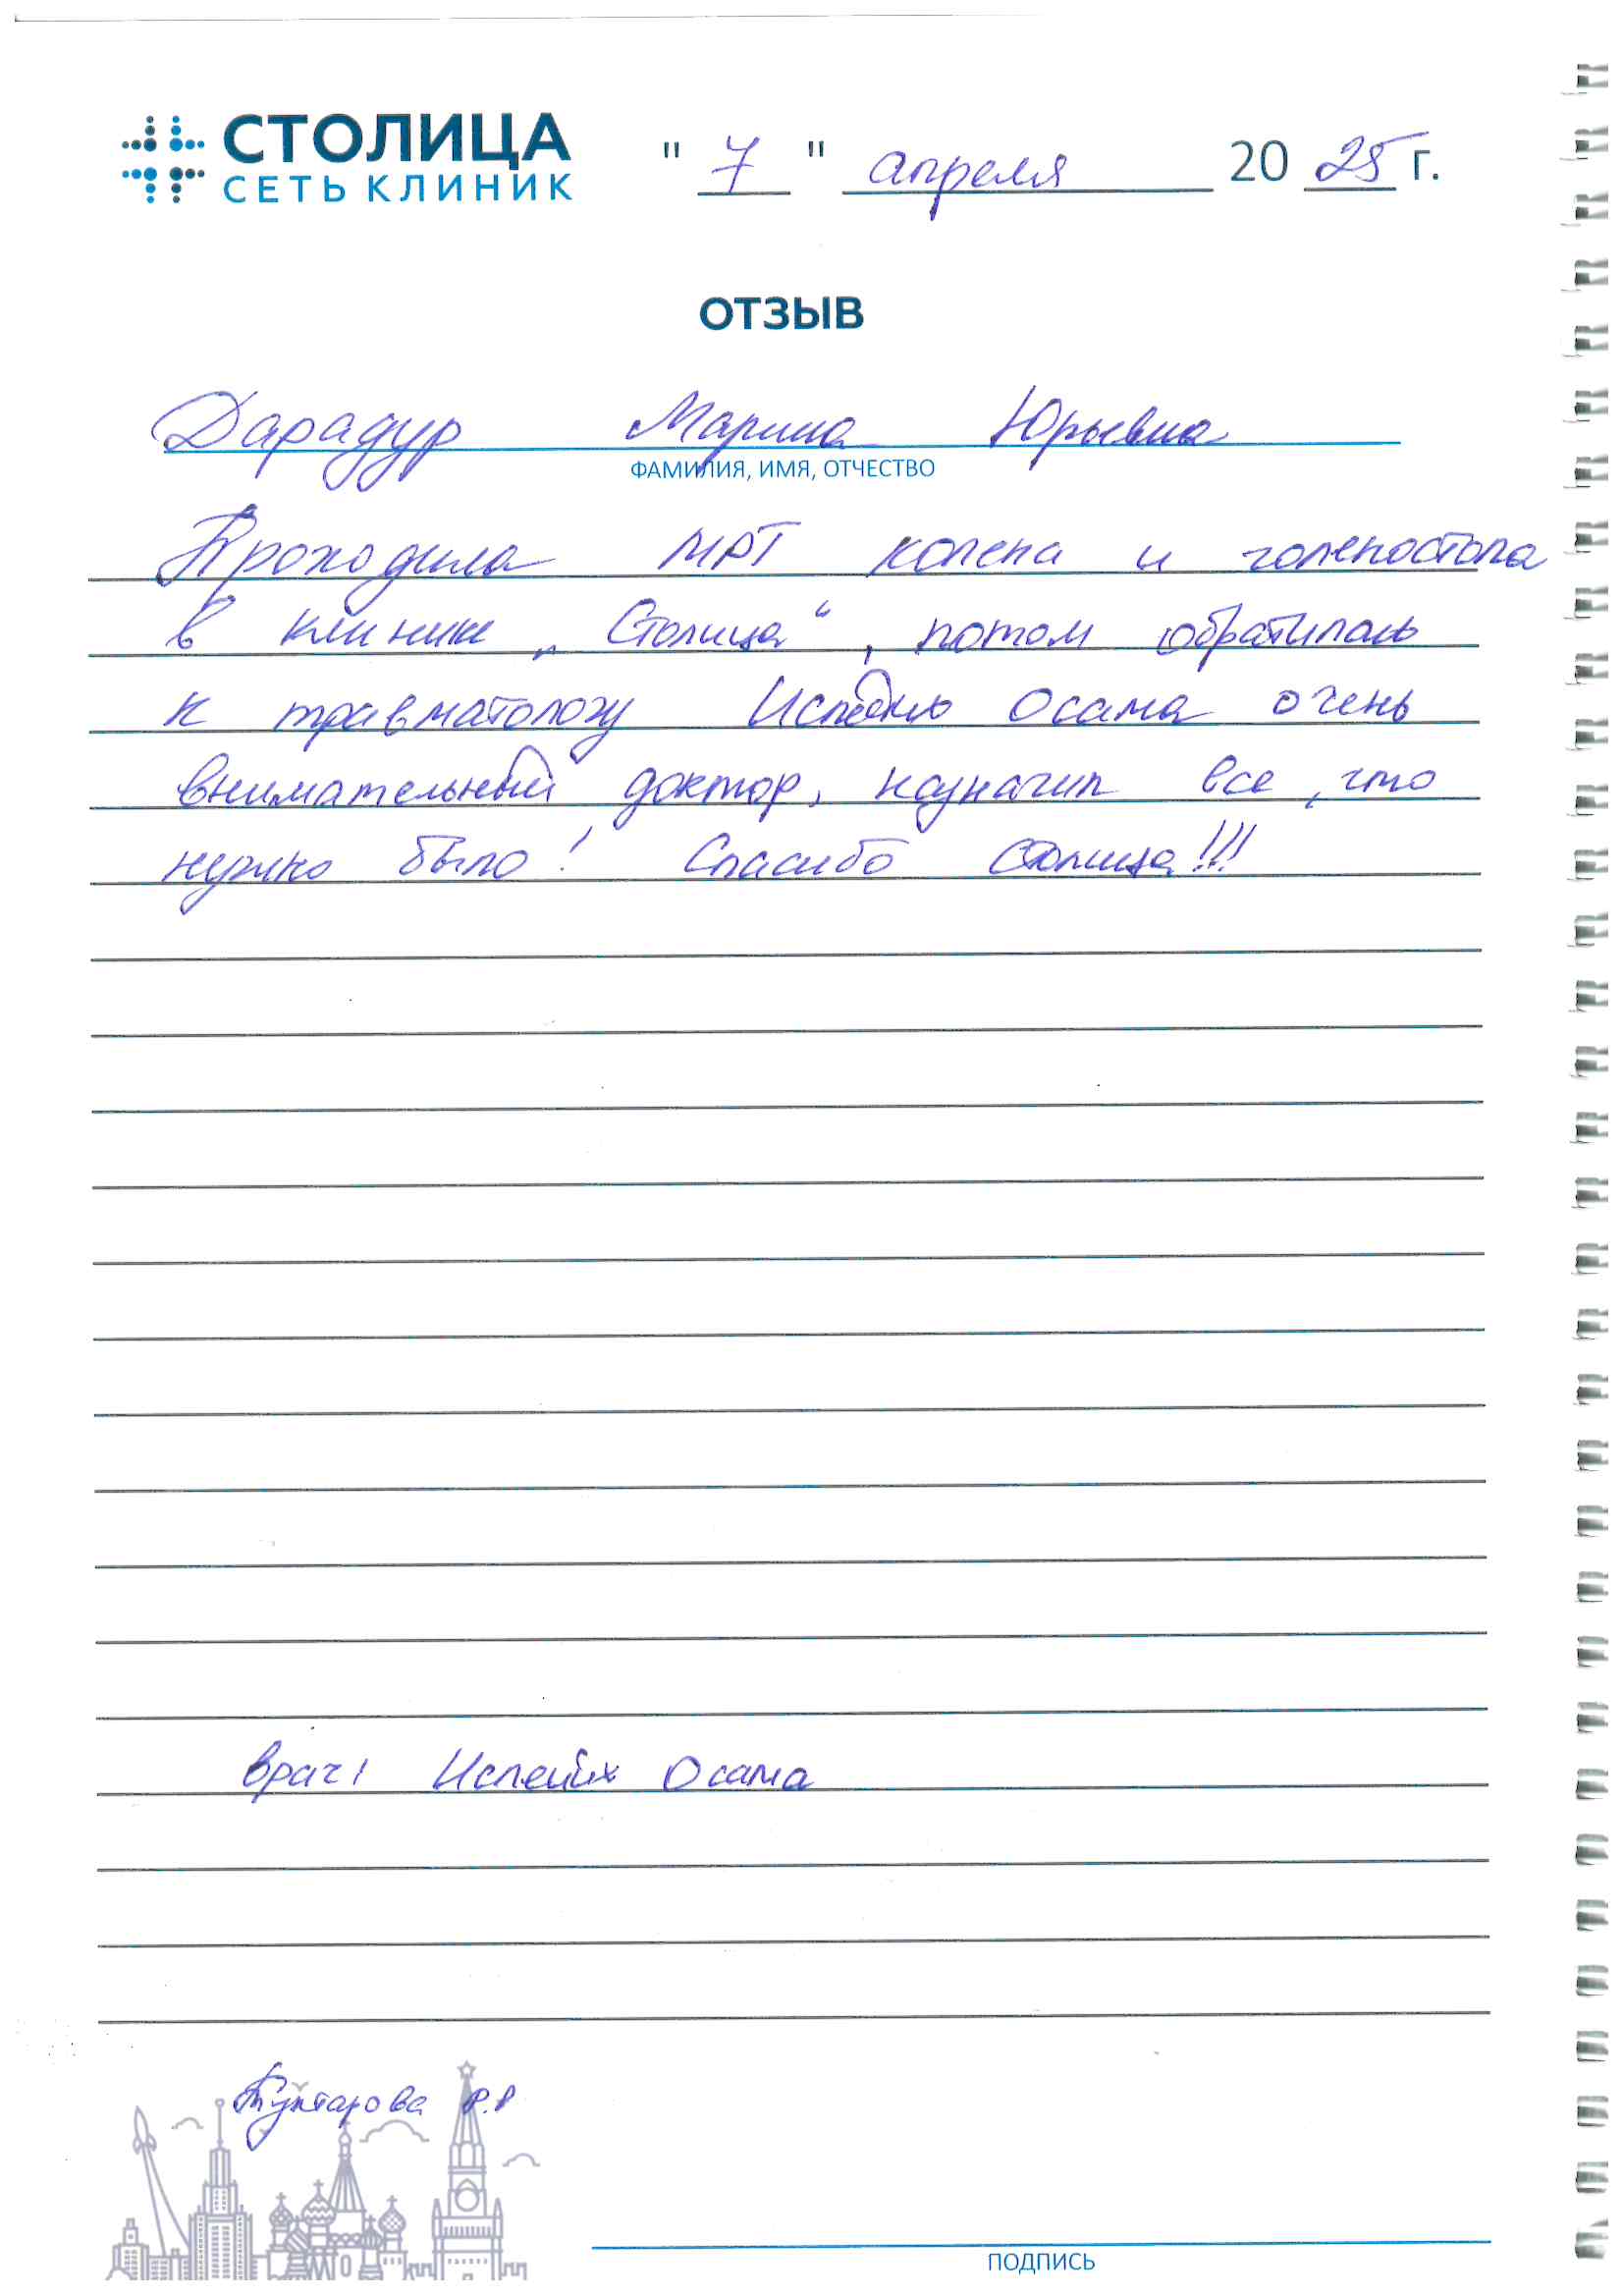 СТОЛИЦА
СЕТЬ КЛИНИК
" 7 " апреля 20 25 г.
ОТЗЫВ
Дарадур Марина Юрьевна
ФАМИЛИЯ, ИМЯ, ОТЧЕСТВО
Проходила МРТ колена и голеностопа
в клинике „Столица“, потом обратилась
к травматологу Осама очень
внимательный доктор, назначил все, что
нужно было! Спасибо Столица!!!
врач: Ислейих Осама
Р.Р
ПОДПИСЬ